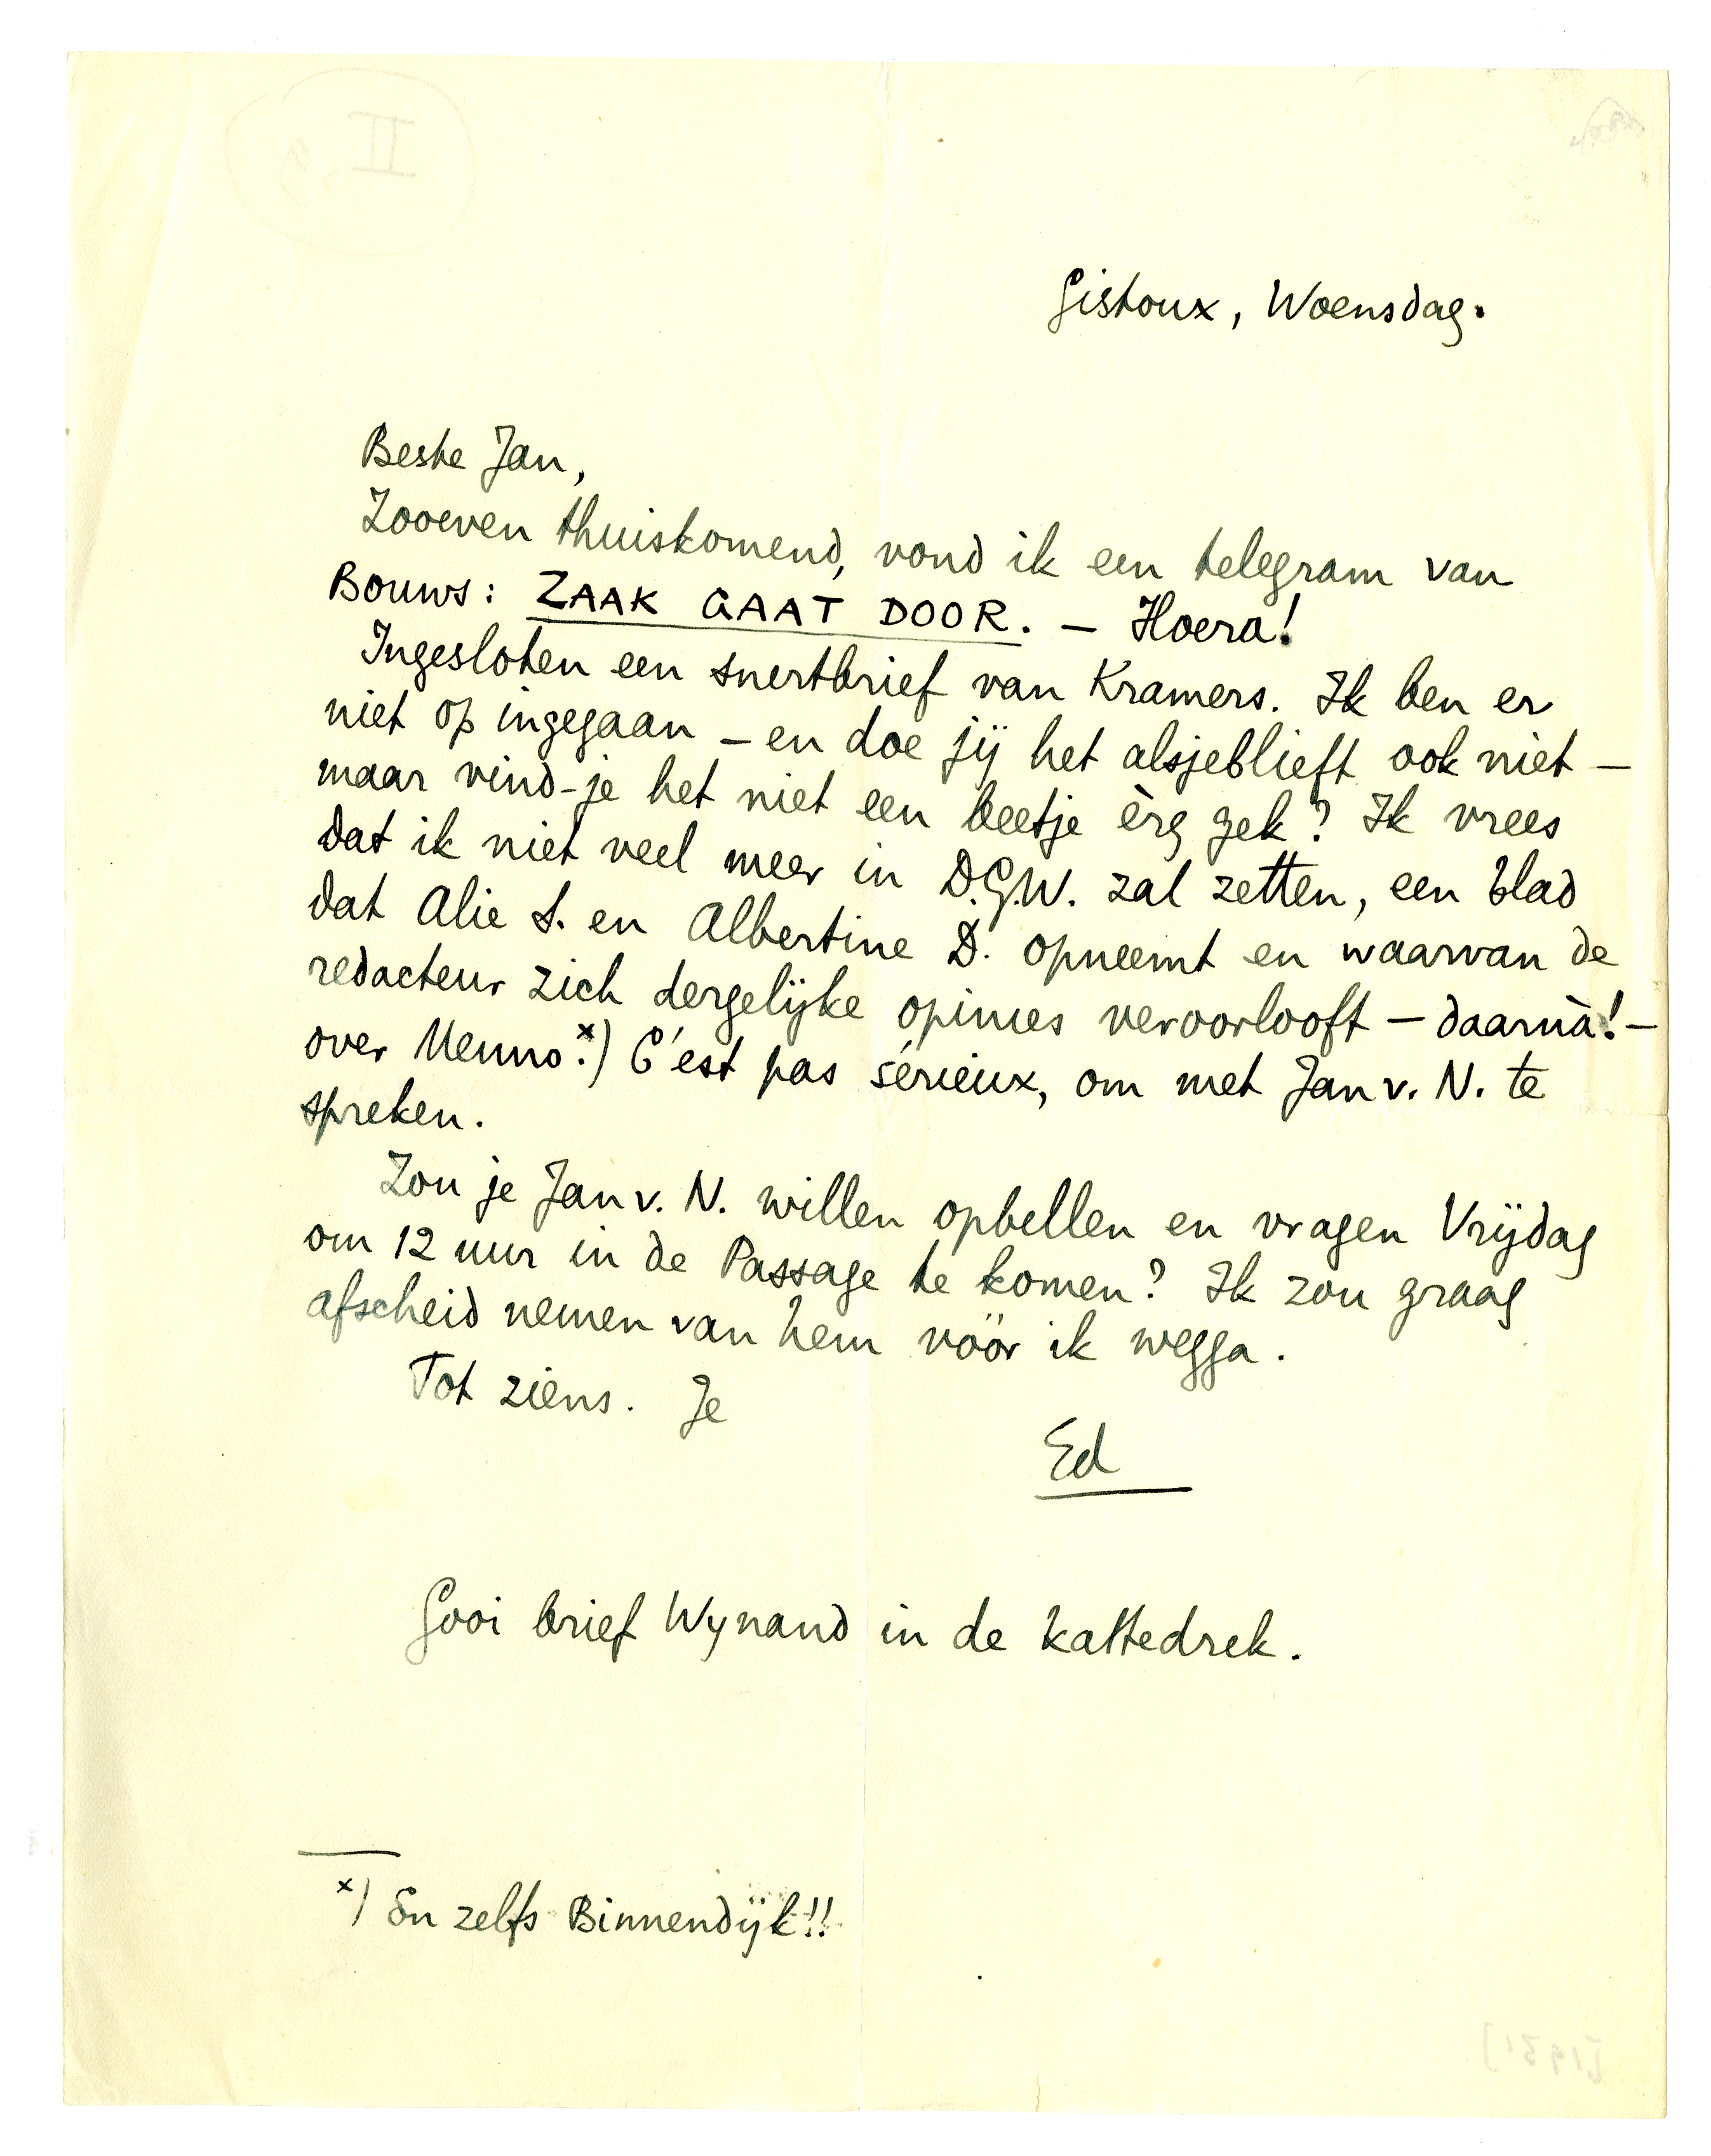 Gistoux, Woensdag.
Beste Jan,
Zooeven thuiskomend, vond ik een telegram van
Bouws: ZAAK GAAT DOOR. — Hoera!
Ingesloten een snertbrief van Kramers. Ik ben er
niet op ingegaan – en doe jij het alsjeblieft ook niet –
maar vind-je het niet een beetje èrg gek? Ik vrees
dat ik niet veel meer in D.G.W. zal zetten, een blad
dat Alie S. en Albertine D. opneemt en waarvan de
redacteur zich dergelijke opinies veroorlooft – daarnà! –
over Menno.x) C'est pas sérieux, om met Jan v. N. te
spreken.
Zou je Jan v. N. willen opbellen en vragen Vrijdag
om 12 uur in de Passage te komen? Ik zou graag
afscheid nemen van hem vóór ik wegga.
Tot ziens. Je
Ed
Gooi brief Wynand in de kattedrek.
x) En zelfs Binnendijk!!
[1931]